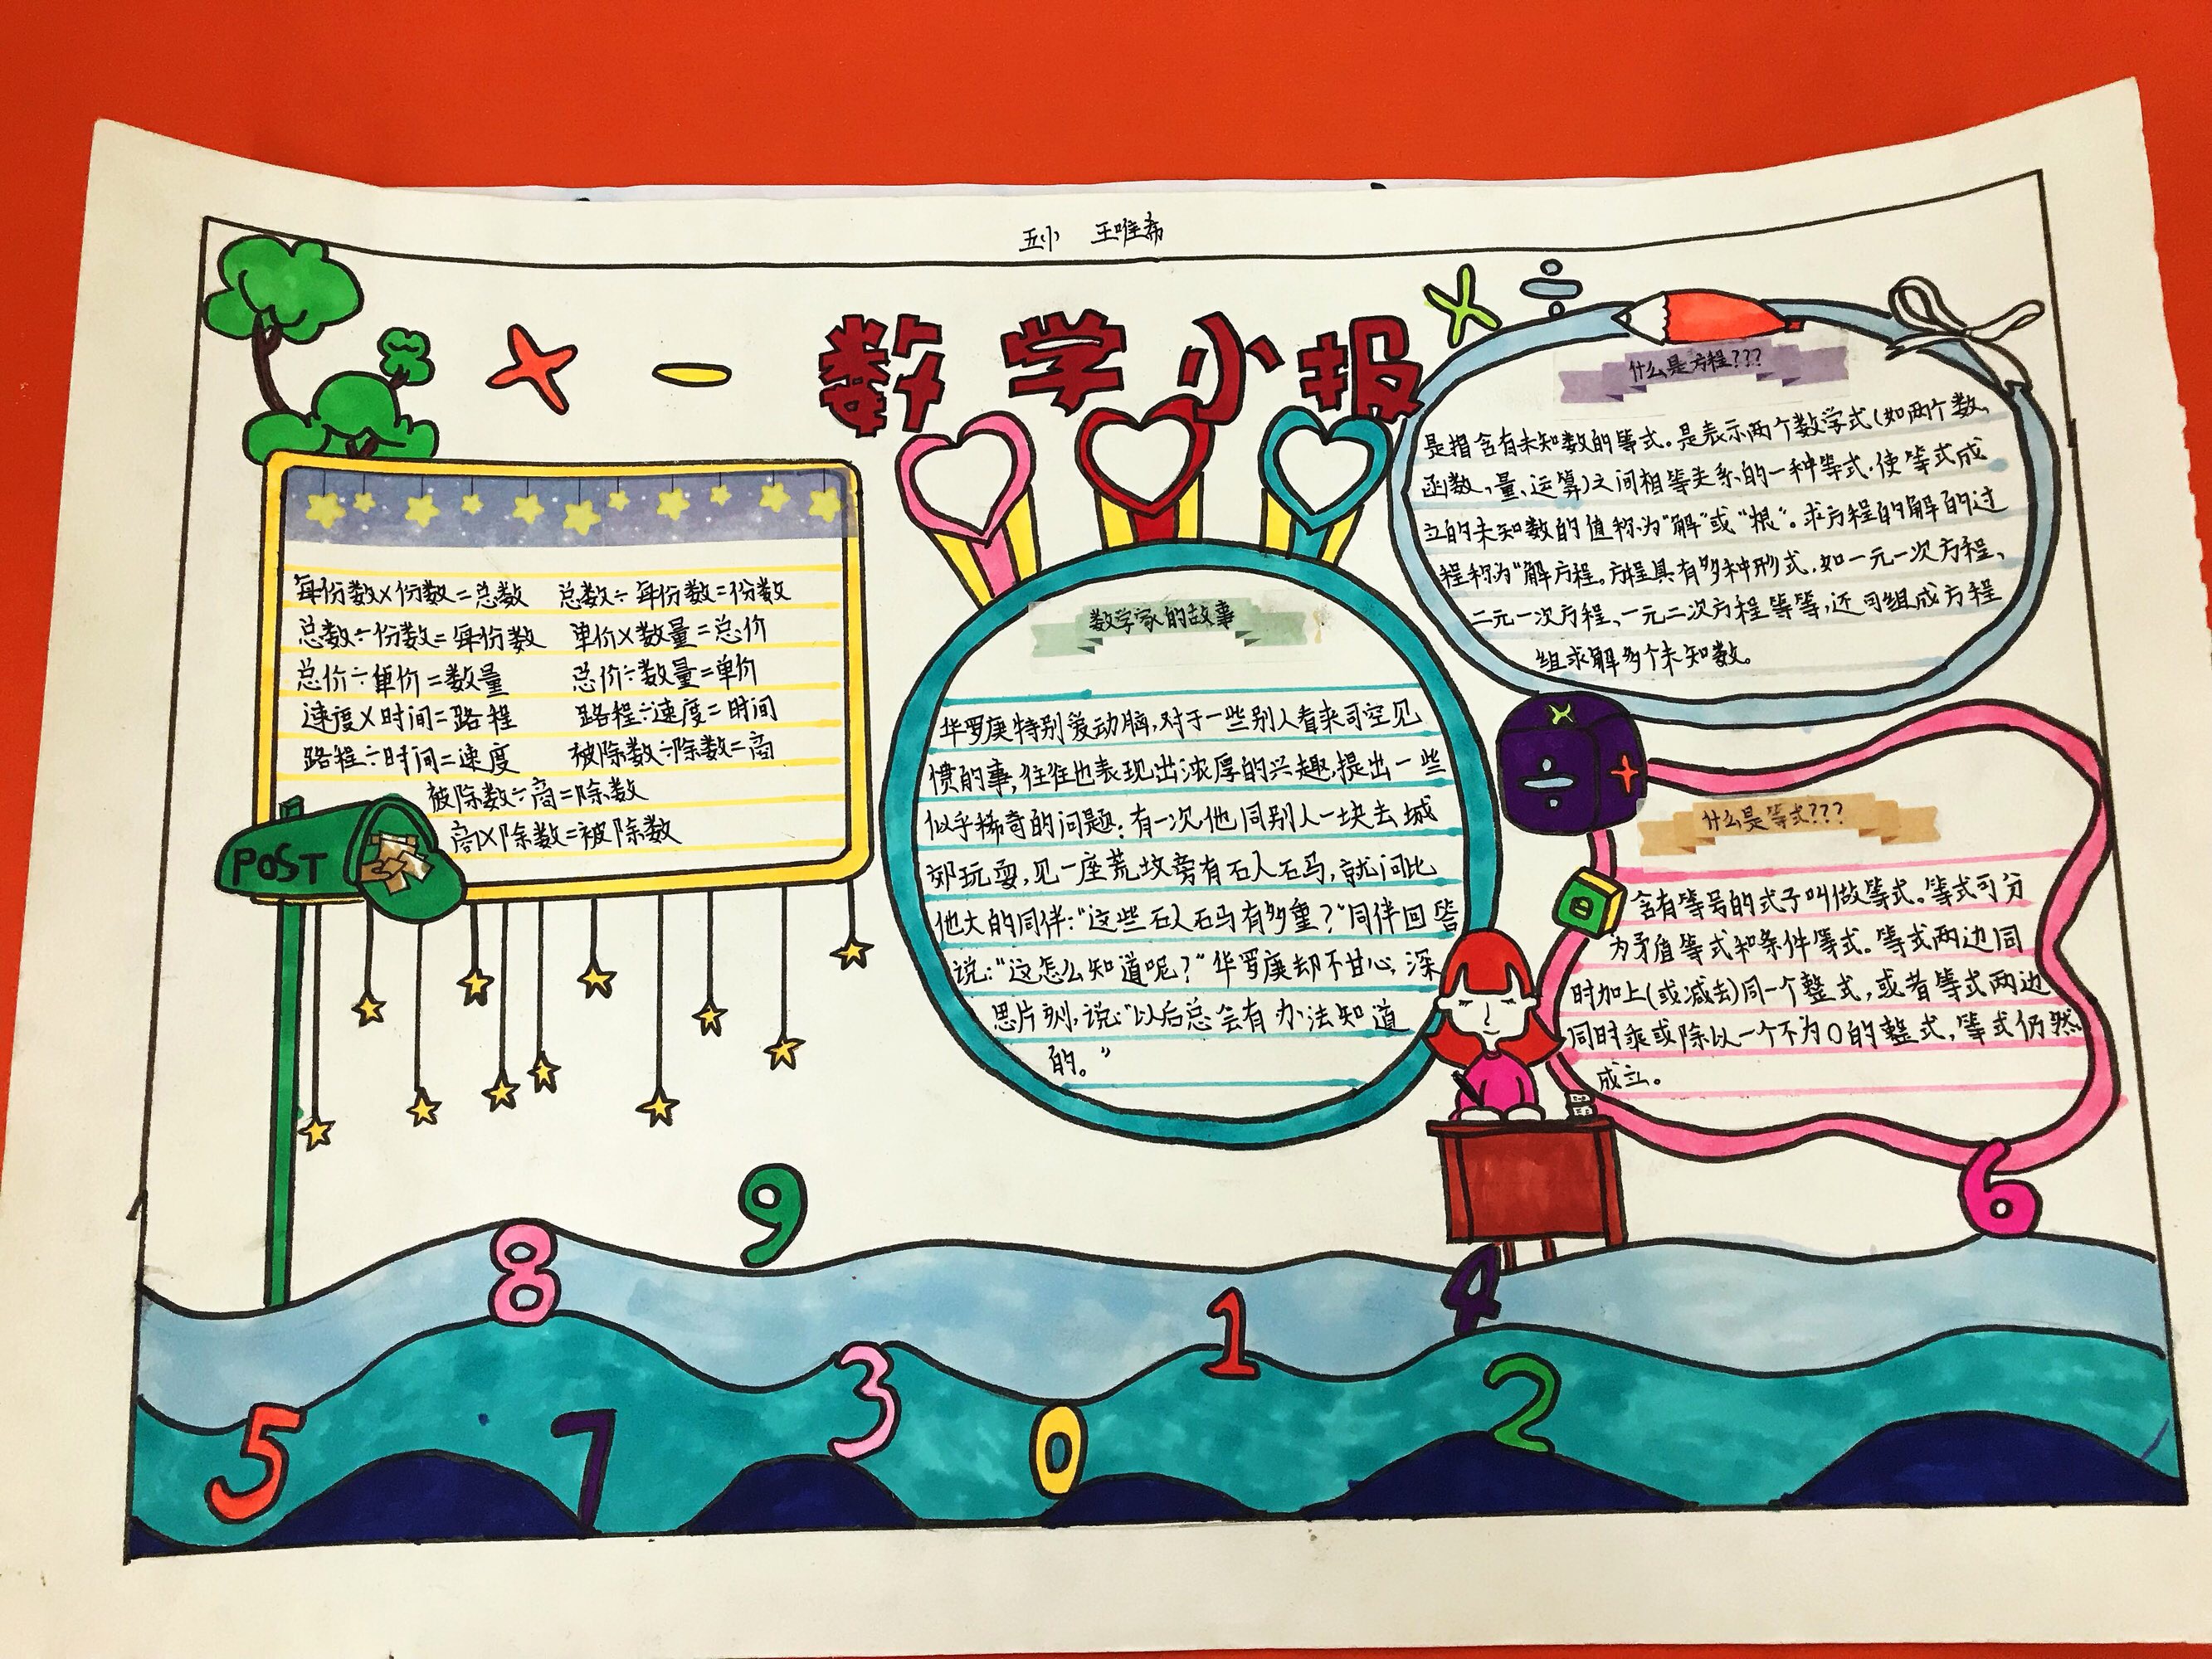 五小 王唯希
+ - 数学小报 × ÷
每份数×份数=总数 总数÷每份数=份数
总数÷份数=每份数 单价×数量=总价
总价÷单价=数量 总价÷数量=单价
速度×时间=路程 路程÷速度=时间
路程÷时间=速度 被除数÷除数=商
被除数÷商=除数
商×除数=被除数
POST
数学家的故事
华罗庚特别爱动脑,对于一些别人看来司空见
惯的事,往往也表现出浓厚的兴趣,提出一些
似乎稀奇的问题:有一次,他同别人一块去城
郊玩耍,见一座荒坟旁有石人石马,就问比
他大的同伴:“这些石人石马有多重?”同伴回答
说:“这怎么知道呢?”华罗庚却不甘心,深
思片刻,说:“以后总会有办法知道
的。”
什么是方程???
是指含有未知数的等式。是表示两个数学式(如两个数、
函数、量、运算)之间相等关系的一种等式,使等式成
立的未知数的值称为“解”或“根”。求方程的解的过
程称为“解方程。方程具有多种形式,如一元一次方程、
二元一次方程、一元二次方程等等,还可组成方程
组求解多个未知数。
× ÷ +
什么是等式???
含有等号的式子叫做等式。等式可分
为矛盾等式和条件等式。等式两边同
时加上(或减去)同一个整式,或者等式两边
同时乘或除以一个不为0的整式,等式仍然
成立。
9
6
8
4
1
3
2
5
7
0